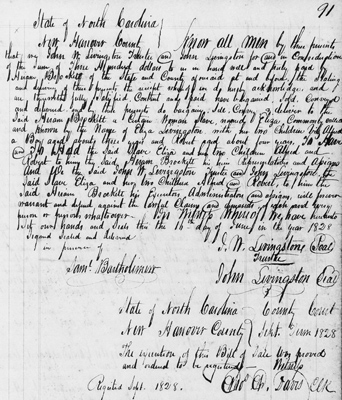 91
State of North Carolina
New Hanover County Know all men by these presents
that, we John W. Livingston Trustee and John Livingston for and in Consideration
of the sum of Three Hundred dollars to us in hand well and truly paid by
Hiram Brockett of the State and County aforesaid at and before the Sealing
and delivery of these presents the receipt whereof we do hereby acknowledge and
are therewith fully satisfied Content and paid have bargained Sold Conveyed
and delivered and by these presents do bargain Sell Convey and deliver to the
Said Hiram Brockett a Certain Woman Slave named Eliza Commonly called
and known by the Name of Eliza Livingston with her two Children Viz Alfred
a Boy aged about three years and Robert aged about one year. To Have
and To Hold the Said Slave Eliza and her two Children Alfred and
Robert to him the Said Hiram Brockett his Representatives and Assigns
And We the Said John W. Livingston Trustee and John Livingston the
Said Slave Eliza and her two Children Alfred and Robert, to him the
said Hiram Brockett his Executors Administrators and assigns, will forever
warrant and defend against the Lawful Claims and demands of each and every
person or persons whatsoever. In Witness Whereof We have hereunto
Set our hands and Seals this the 16th day of June in the year 1828
Signed Sealed and delivered
in presence of
J. W. Livingstone Seal
Trustee
Saml. Bartholomew
John Livingston Seal
State of North Carolina County Court
New Hanover County Sept. Term 1828
The execution of this Bill of Sale was proved
and ordered to be registered Witness
Registered Sept. 1828.
Davis Clk